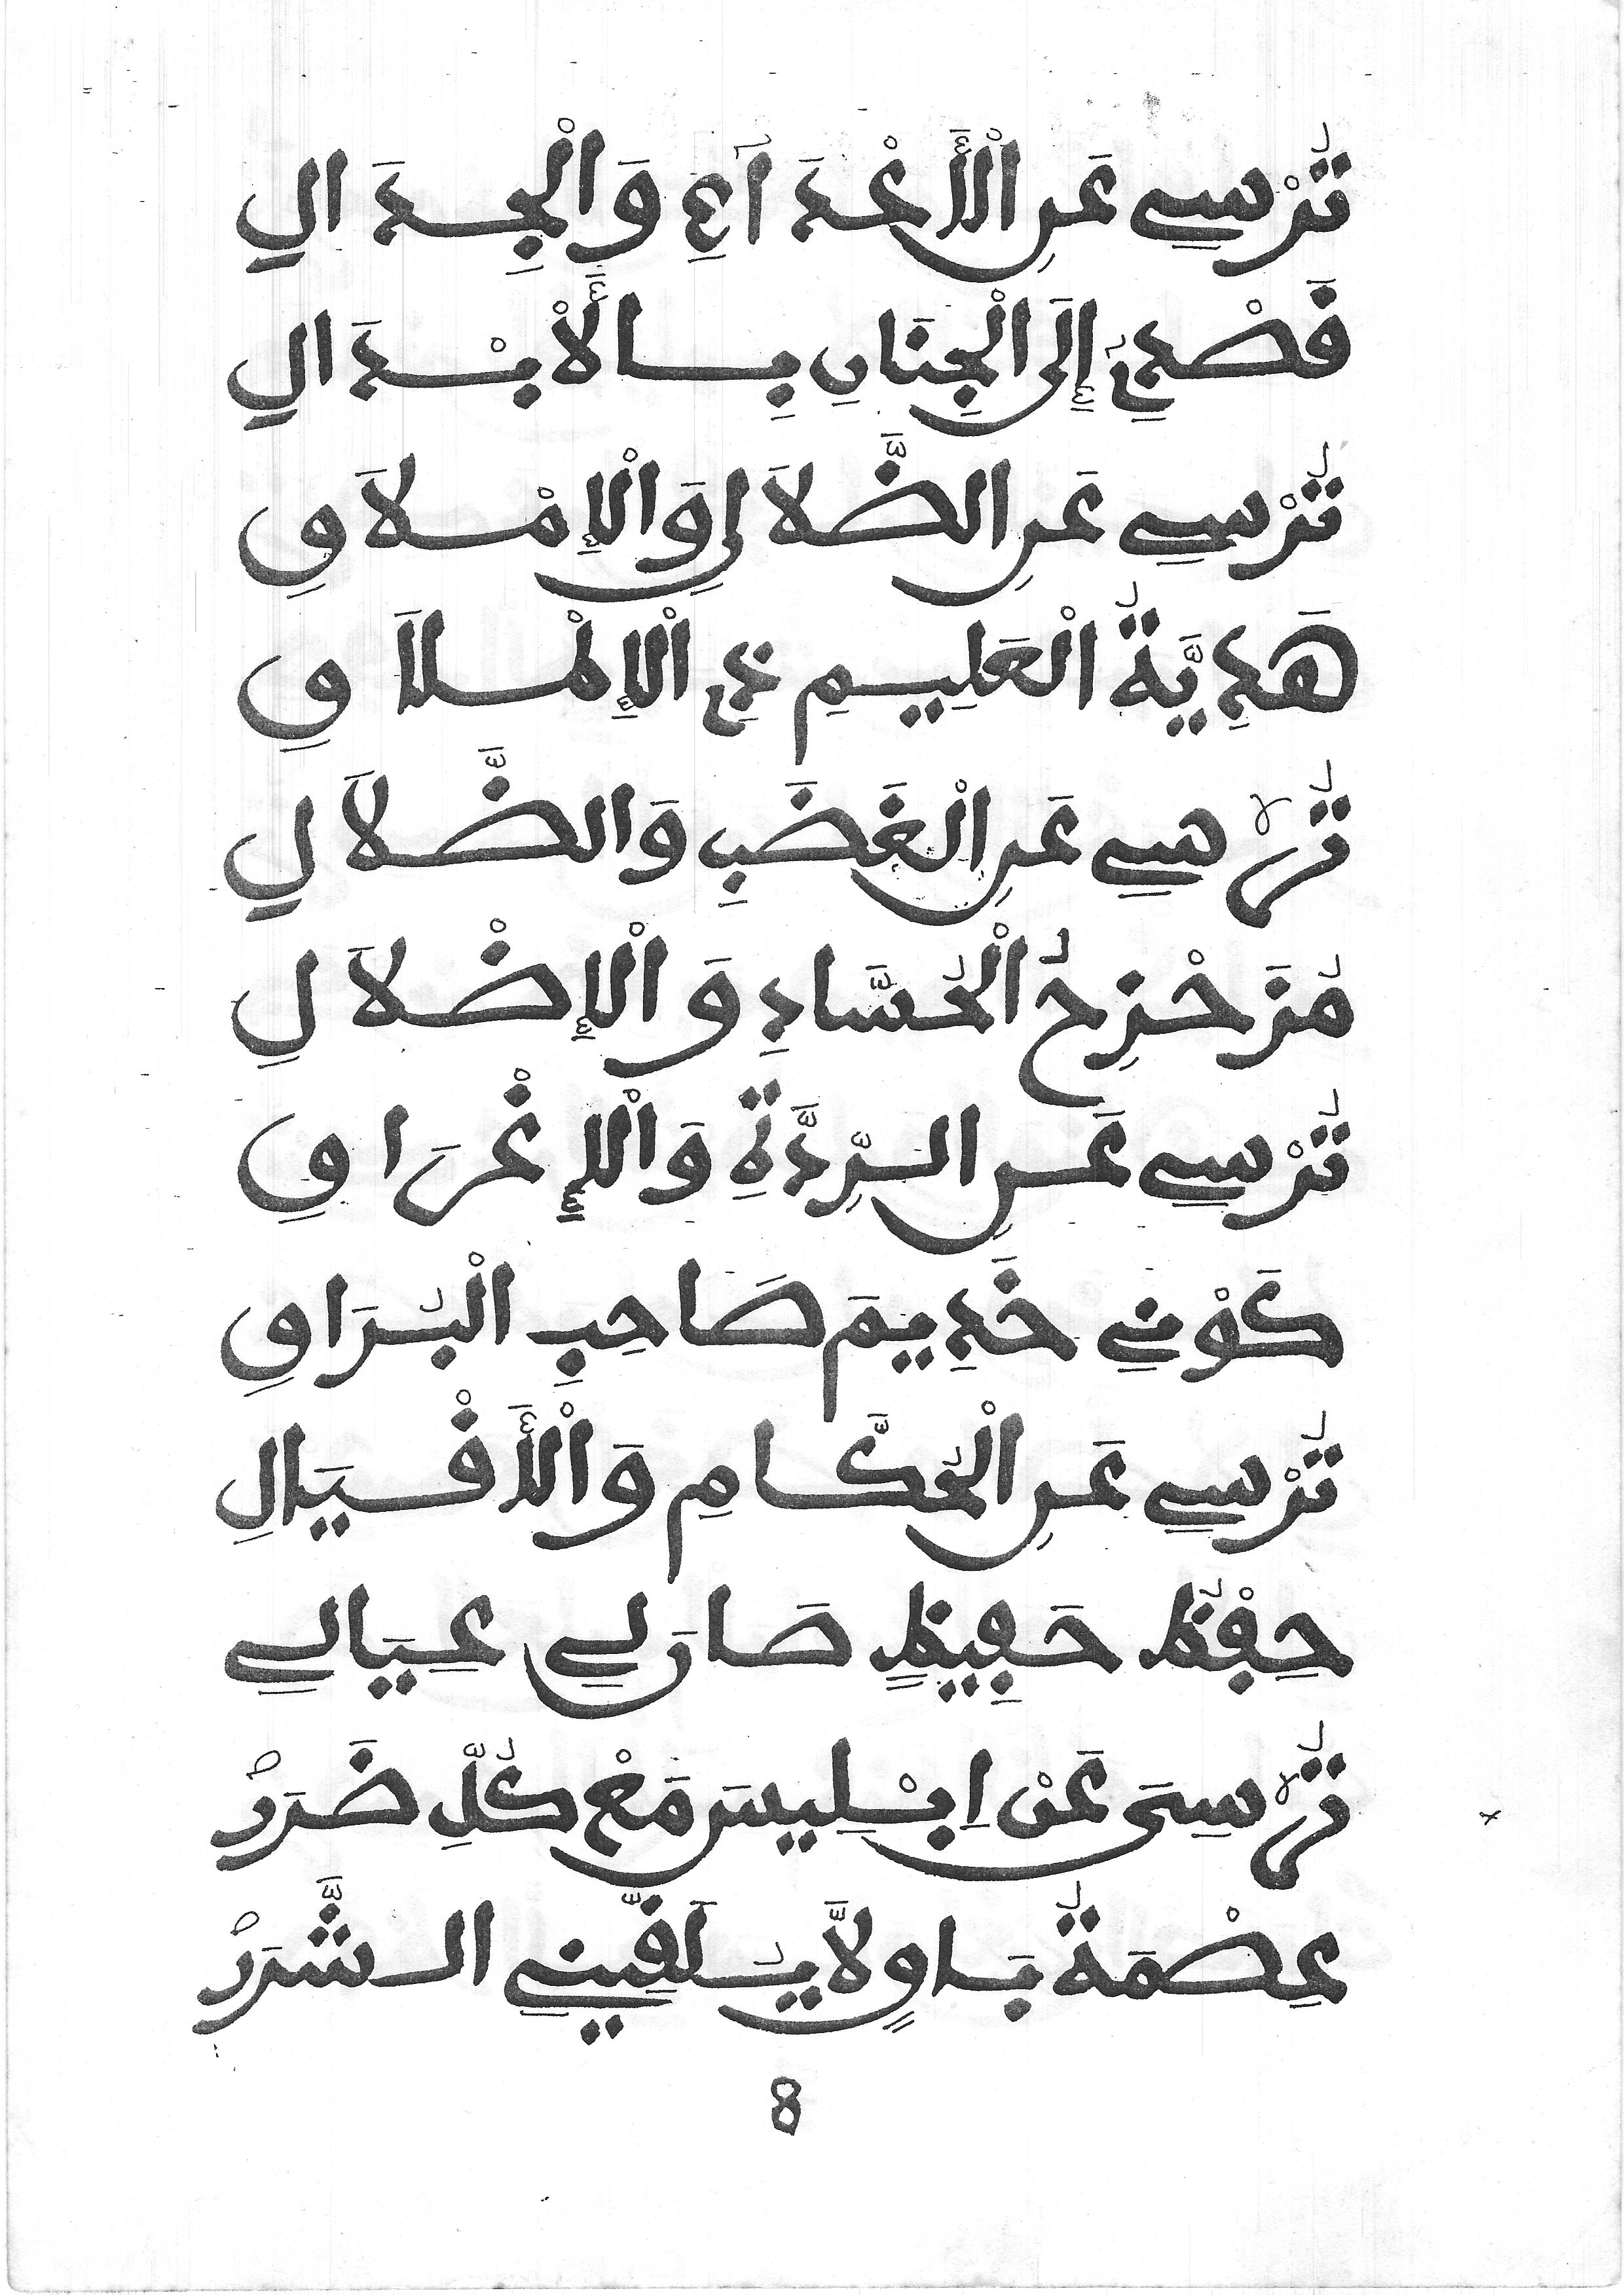 تُرْسِي عَنِ الْأَعْدَآءِ وَالْجِدَالِ
قَصْدِي إِلَى الْجِنَانِ بِالْأَبْدَالِ
تُرْسِي عَنِ الضَّلَالِ وَالْإِمْلَاقِ
هَدِيَّةُ الْعَلِيمِ ذِي الْإِمْلَاقِ
تُرْسِي عَنِ الْغَضَبِ وَالضَّلَالِ
مُزَحْزِحُ الْحُسَّادِ وَالْإِضْلَالِ
تُرْسِي عَنِ الرِّدَّةِ وَالْإِغْرَاقِ
كَوْنِي خَدِيمَ صَاحِبِ الْبُرَاقِ
تُرْسِي عَنِ الْحُكَّامِ وَالْأَقْيَالِ
حِفْظُ حَفِيظٍ صَارَ لِي عِيَالِي
تُرْسِيَ عَنْ اِبْلِيسَ مَعْ كُلِّ ضَرَرْ
عِصْمَةُ بَاقٍ لَّا يُلَقِّينِي الشَّرَرْ
8